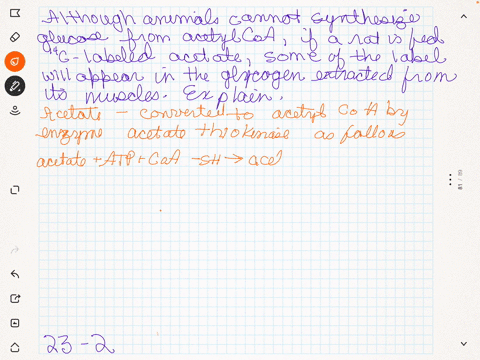 Although animals cannot synthesize
glucose from acetyl CoA, if a rat is fed
¹⁴C-labelled acetate, some of the label
will appear in the glycogen extracted from
its muscles. Explain.
Acetate - converted to acetyl CoA by
enzyme acetate thiokinase as follows
acetate + ATP + CoA -SH → acel
23-2